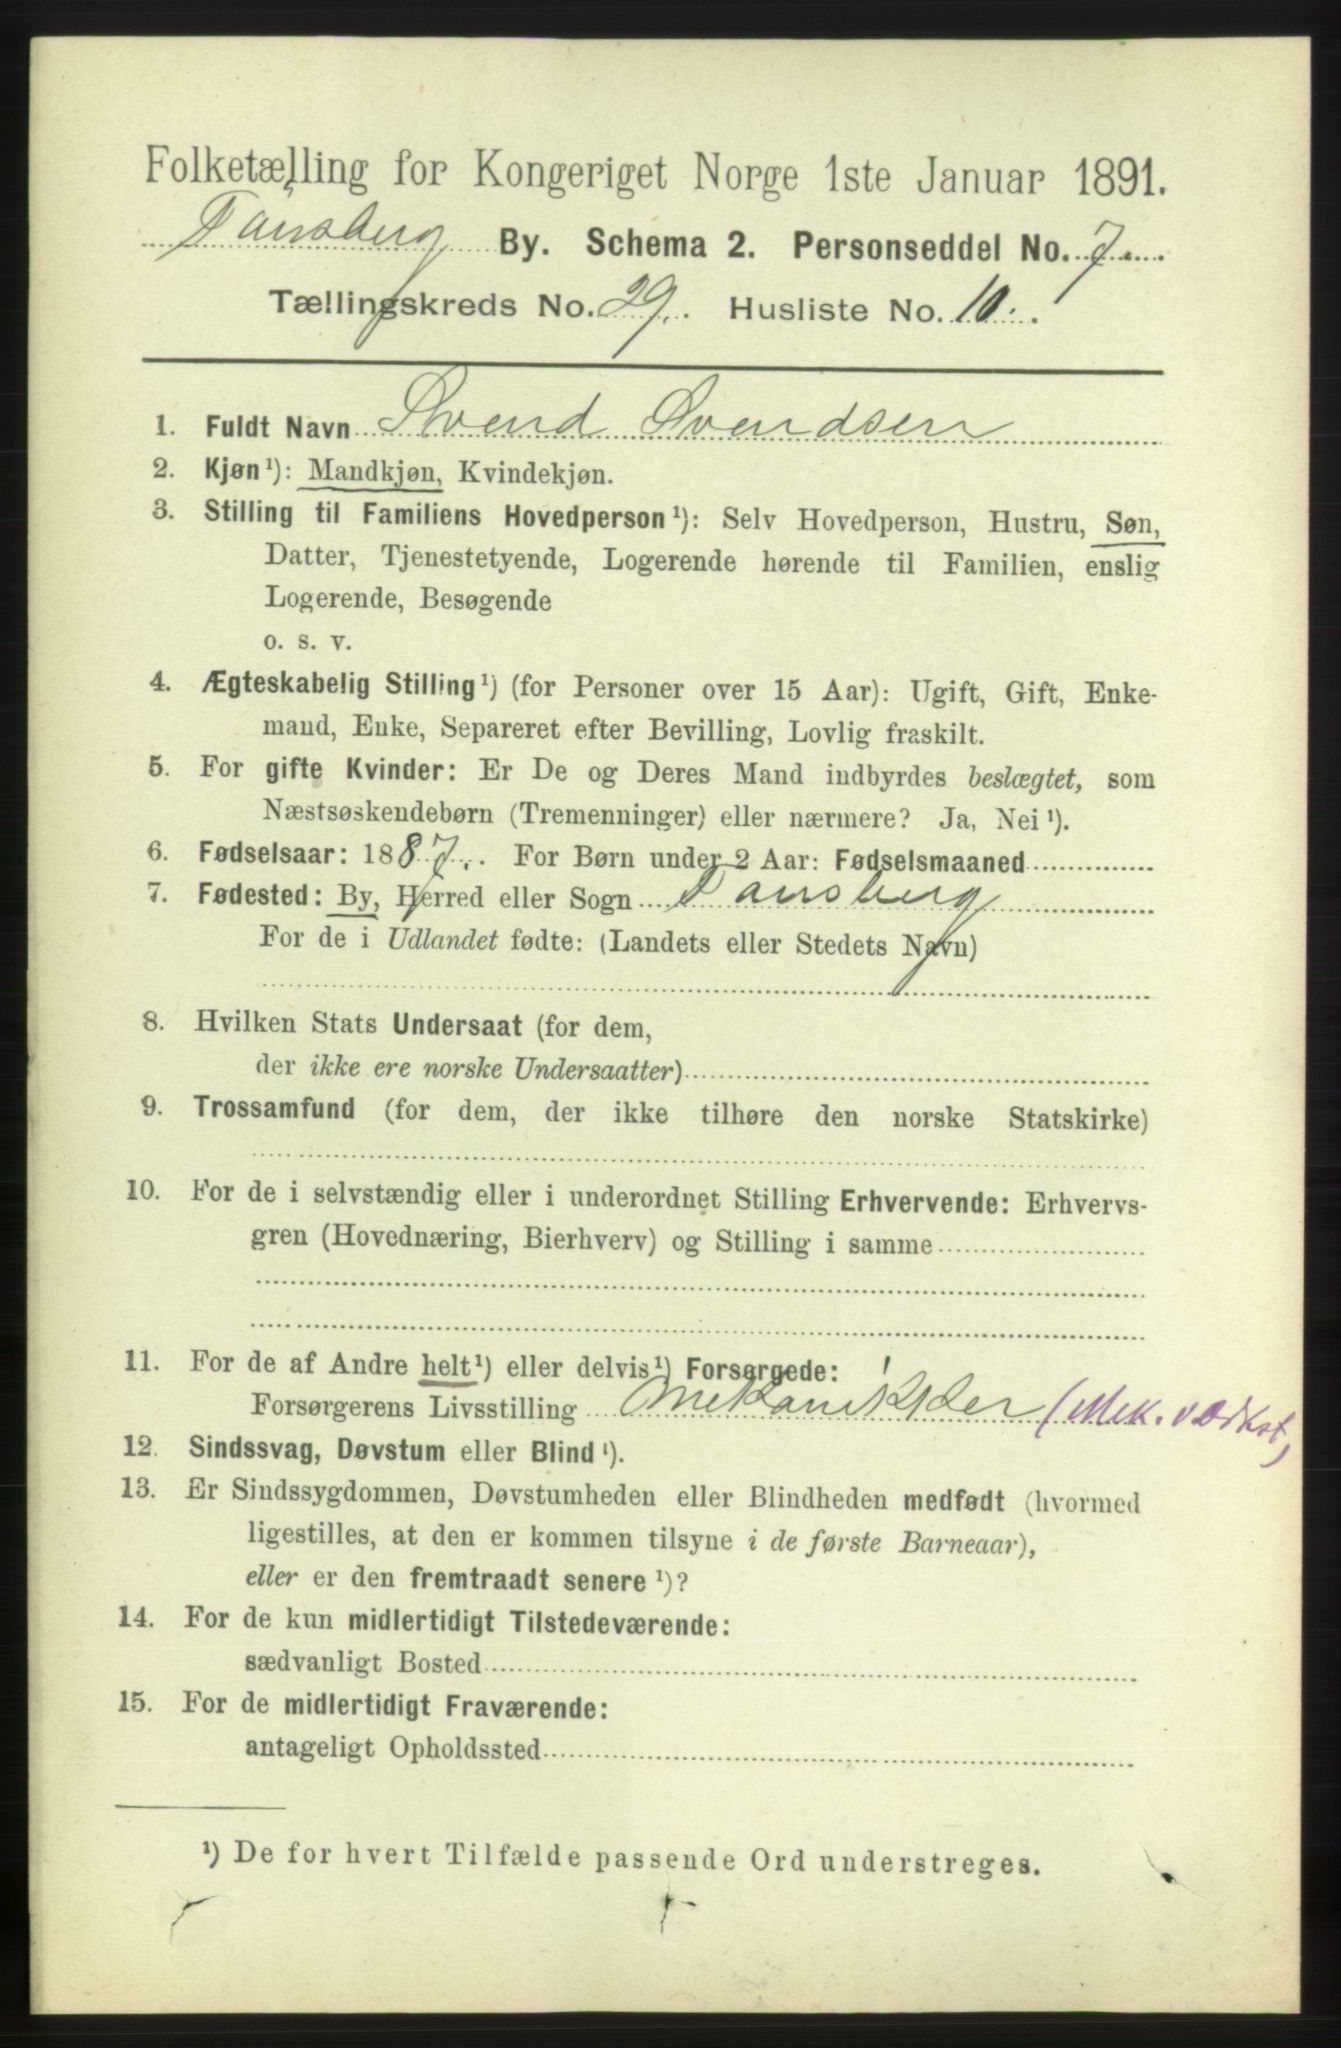 Folketælling for Kongeriget Norge 1ste Januar 1891.
Tønsberg By. Schema 2. Personseddel No. 7.
Tællingskreds No. 29. Husliste No. 10.
1. Fuldt Navn Svend Svendsen
2. Kjøn¹): Mandkjøn, Kvindekjøn.
3. Stilling til Familiens Hovedperson¹): Selv Hovedperson, Hustru, Søn,
Datter, Tjenestetyende, Logerende hørende til Familien, enslig
Logerende, Besøgende
o. s. v.
4. Ægteskabelig Stilling¹) (for Personer over 15 Aar): Ugift, Gift, Enke-
mand, Enke, Separeret efter Bevilling, Lovlig fraskilt.
5. For gifte Kvinder: Er De og Deres Mand indbyrdes beslægtet, som
Næstsøskendebørn (Tremenninger) eller nærmere? Ja, Nei¹).
6. Fødselsaar: 1887. For Børn under 2 Aar: Fødselsmaaned
7. Fødested: By, Herred eller Sogn Tønsberg
For de i Udlandet fødte: (Landets eller Stedets Navn)
8. Hvilken Stats Undersaat (for dem,
der ikke ere norske Undersaatter)
9. Trossamfund (for dem, der ikke tilhøre den norske Statskirke)
10. For de i selvstændig eller i underordnet Stilling Erhvervende: Erhvervs-
gren (Hovednæring, Bierhverv) og Stilling i samme
11. For de af Andre helt¹) eller delvis¹) Forsørgede:
Forsørgerens Livsstilling Mekanikker (Mek. værkst,
12. Sindssvag, Døvstum eller Blind¹).
13. Er Sindssygdommen, Døvstumheden eller Blindheden medfødt (hvormed
ligestilles, at den er kommen tilsyne i de første Barneaar),
eller er den fremtraadt senere¹)?
14. For de kun midlertidigt Tilstedeværende:
sædvanligt Bosted
15. For de midlertidigt Fraværende:
antageligt Opholdssted
¹) De for hvert Tilfælde passende Ord understreges.